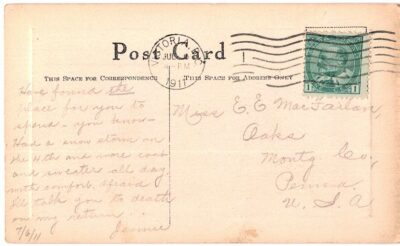 Post Card
VICTORIA, B.C.
PM
1911
THIS SPACE FOR CORRESPONDENCE
THIS SPACE FOR ADDRESS ONLY
1 1
Have found the
place for you to
spend - you know -
Had a snow storm on
the 4th and wore coat
and sweater all day,
with comfort. Afraid
I'll talk you to death
on my return.
7/6/11 Jannie
Miss E. E. MacFarlan,
Oaks
Montg. Co,
Penna.
U.S.A